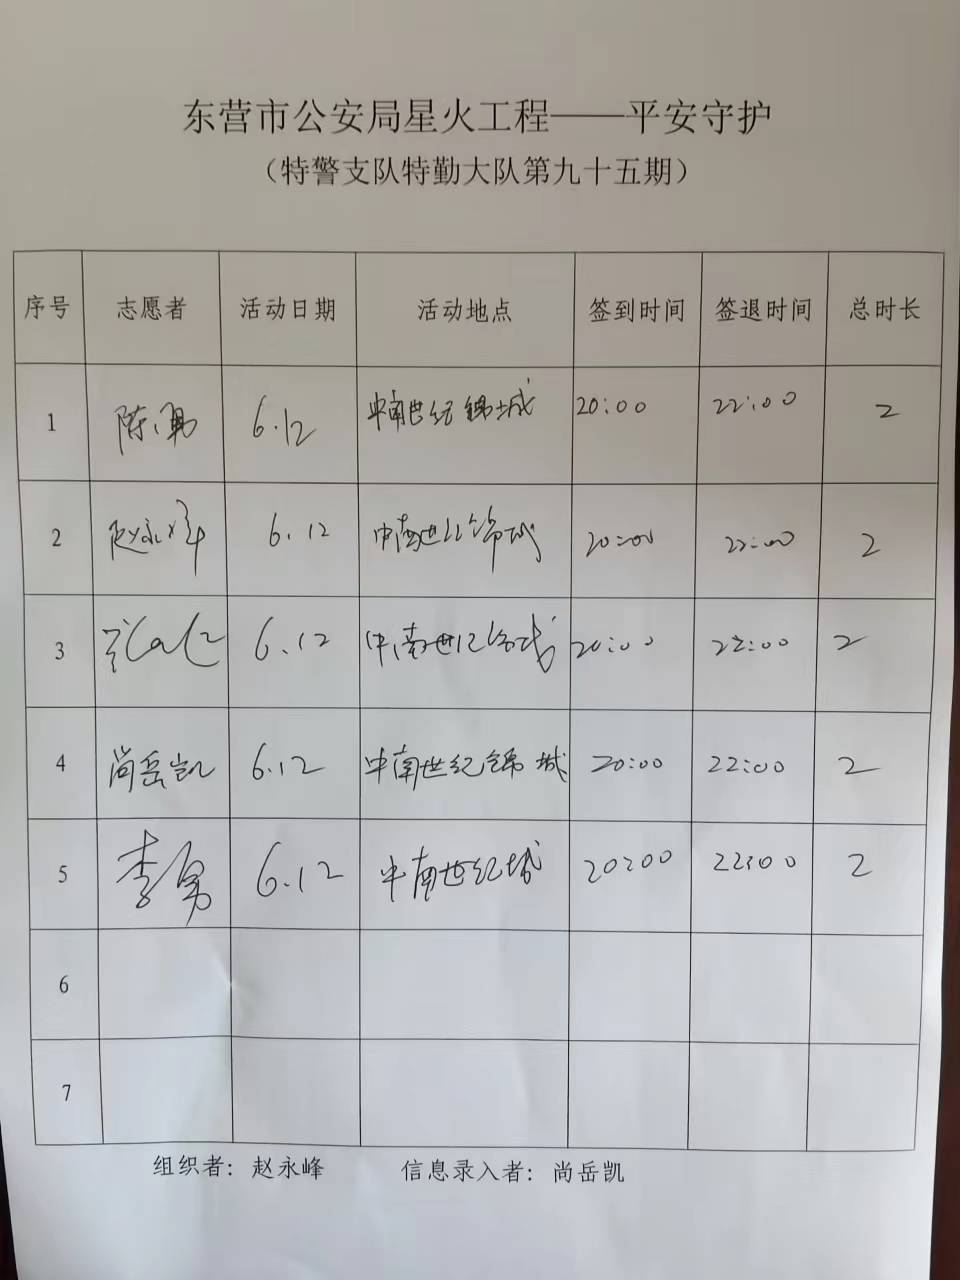 东营市公安局星火工程——平安守护
（特警支队特勤大队第九十五期）
序号 志愿者 活动日期 活动地点 签到时间 签退时间 总时长
1 陈勇 6.12 中南世纪锦城 20:00 22:00 2
2 赵永峰 6.12 中南世纪锦城 20:00 22:00 2
3 6.12 中南世纪锦城 20:00 22:00 2
4 尚岳凯 6.12 中南世纪锦城 20:00 22:00 2
5 李勇 6.12 中南世纪城 20:00 22:00 2
6
7
组织者：赵永峰 信息录入者：尚岳凯